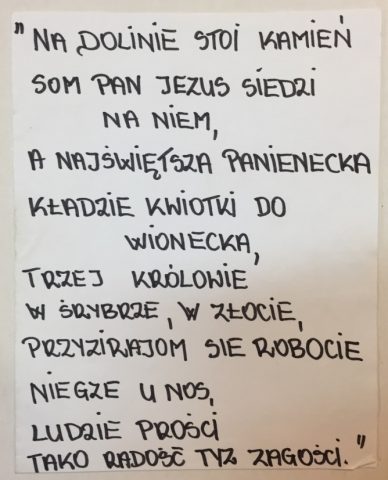 "NA DOLINIE STOI KAMIEŃ
SOM PAN JEZUS SIEDZI
NA NIEM,
A NAJŚWIĘTSZA PANIENECKA
KŁADZIE KWIOTKI DO
WIONECKA,
TRZEJ KRÓLOWIE
W ŚRYBRZE, W ZŁOCIE,
PRZYZIRAJOM SIE ROBOCIE
NIEGZE U NOS,
LUDZIE PROŚCI
TAKO RADOŚĆ TYZ ZAGOŚCI."